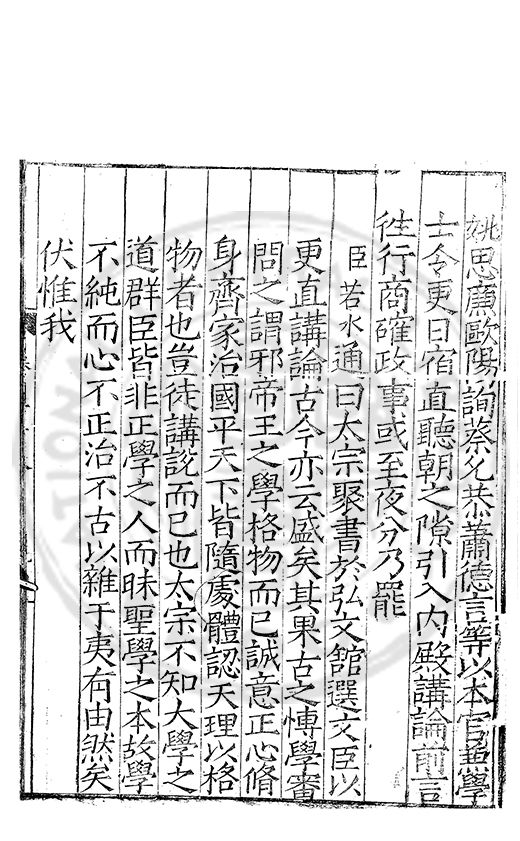 姚思廉歐陽詢蔡允恭蕭德言等以本官兼學
士令更日宿直聽朝之隙引入內殿講論前言
徃行商確政事或至夜分乃罷
臣若水通曰太宗聚書於弘文館選文臣以
更直講論古今亦云盛矣其果古之愽學審
問之謂邪帝王之學格物而已誠意正心脩
身齊家治國平天下皆隨處體認天理以格
物者也豈徒講說而已也太宗不知大學之
道群臣皆非正學之人而昧聖學之本故學
不純而心不正治不古以雜于夷有由然矣
伏惟我